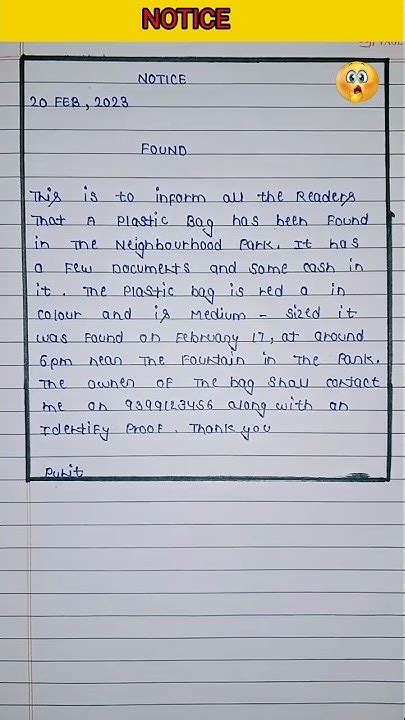 NOTICE
NOTICE
20 FEB, 2023
FOUND
This is to inform all the Readers
That A Plastic Bag has been Found
in The Neighbourhood Park. It has
a Few Documents and some cash in
it. The Plastic bag is red a in
colour and is Medium - sized it
was Found on February 17, at around
6pm near The Fountain in The Park.
The owner of The bag shall contact
me on 9399123456 along with an
Identify Proof. Thank you
Pulit